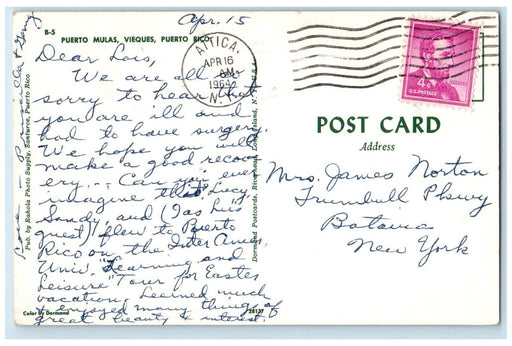 Apr. 15
B-5
PUERTO MULAS, VIEQUES, PUERTO RICO
Dear Lois,
We are all so
sorry to hear that
you are ill and
had to have surgery.
We hope you will
make a good recov
ery... Can you ever
imagine that Lucy,
Sandy, and I (as his
guest) flew to Puerto
Rico on the Inter Amer.
Univ. "Learning and
Leisure" Tour for Easter
vacation. Learned much
& enjoyed many things of
great beauty & interest.
Love
Pub. by Rahola Photo Supply, Santurce, Puerto Rico
Color by Dormand
28127
Dormand Postcards, Riverhead, Long Island, N.Y.
ATTICA
APR 16
AM
1964
N.Y.
4¢
U.S. POSTAGE
POST CARD
Address
Mrs. James Norton
Trumbull Pkwy
Batavia
New York